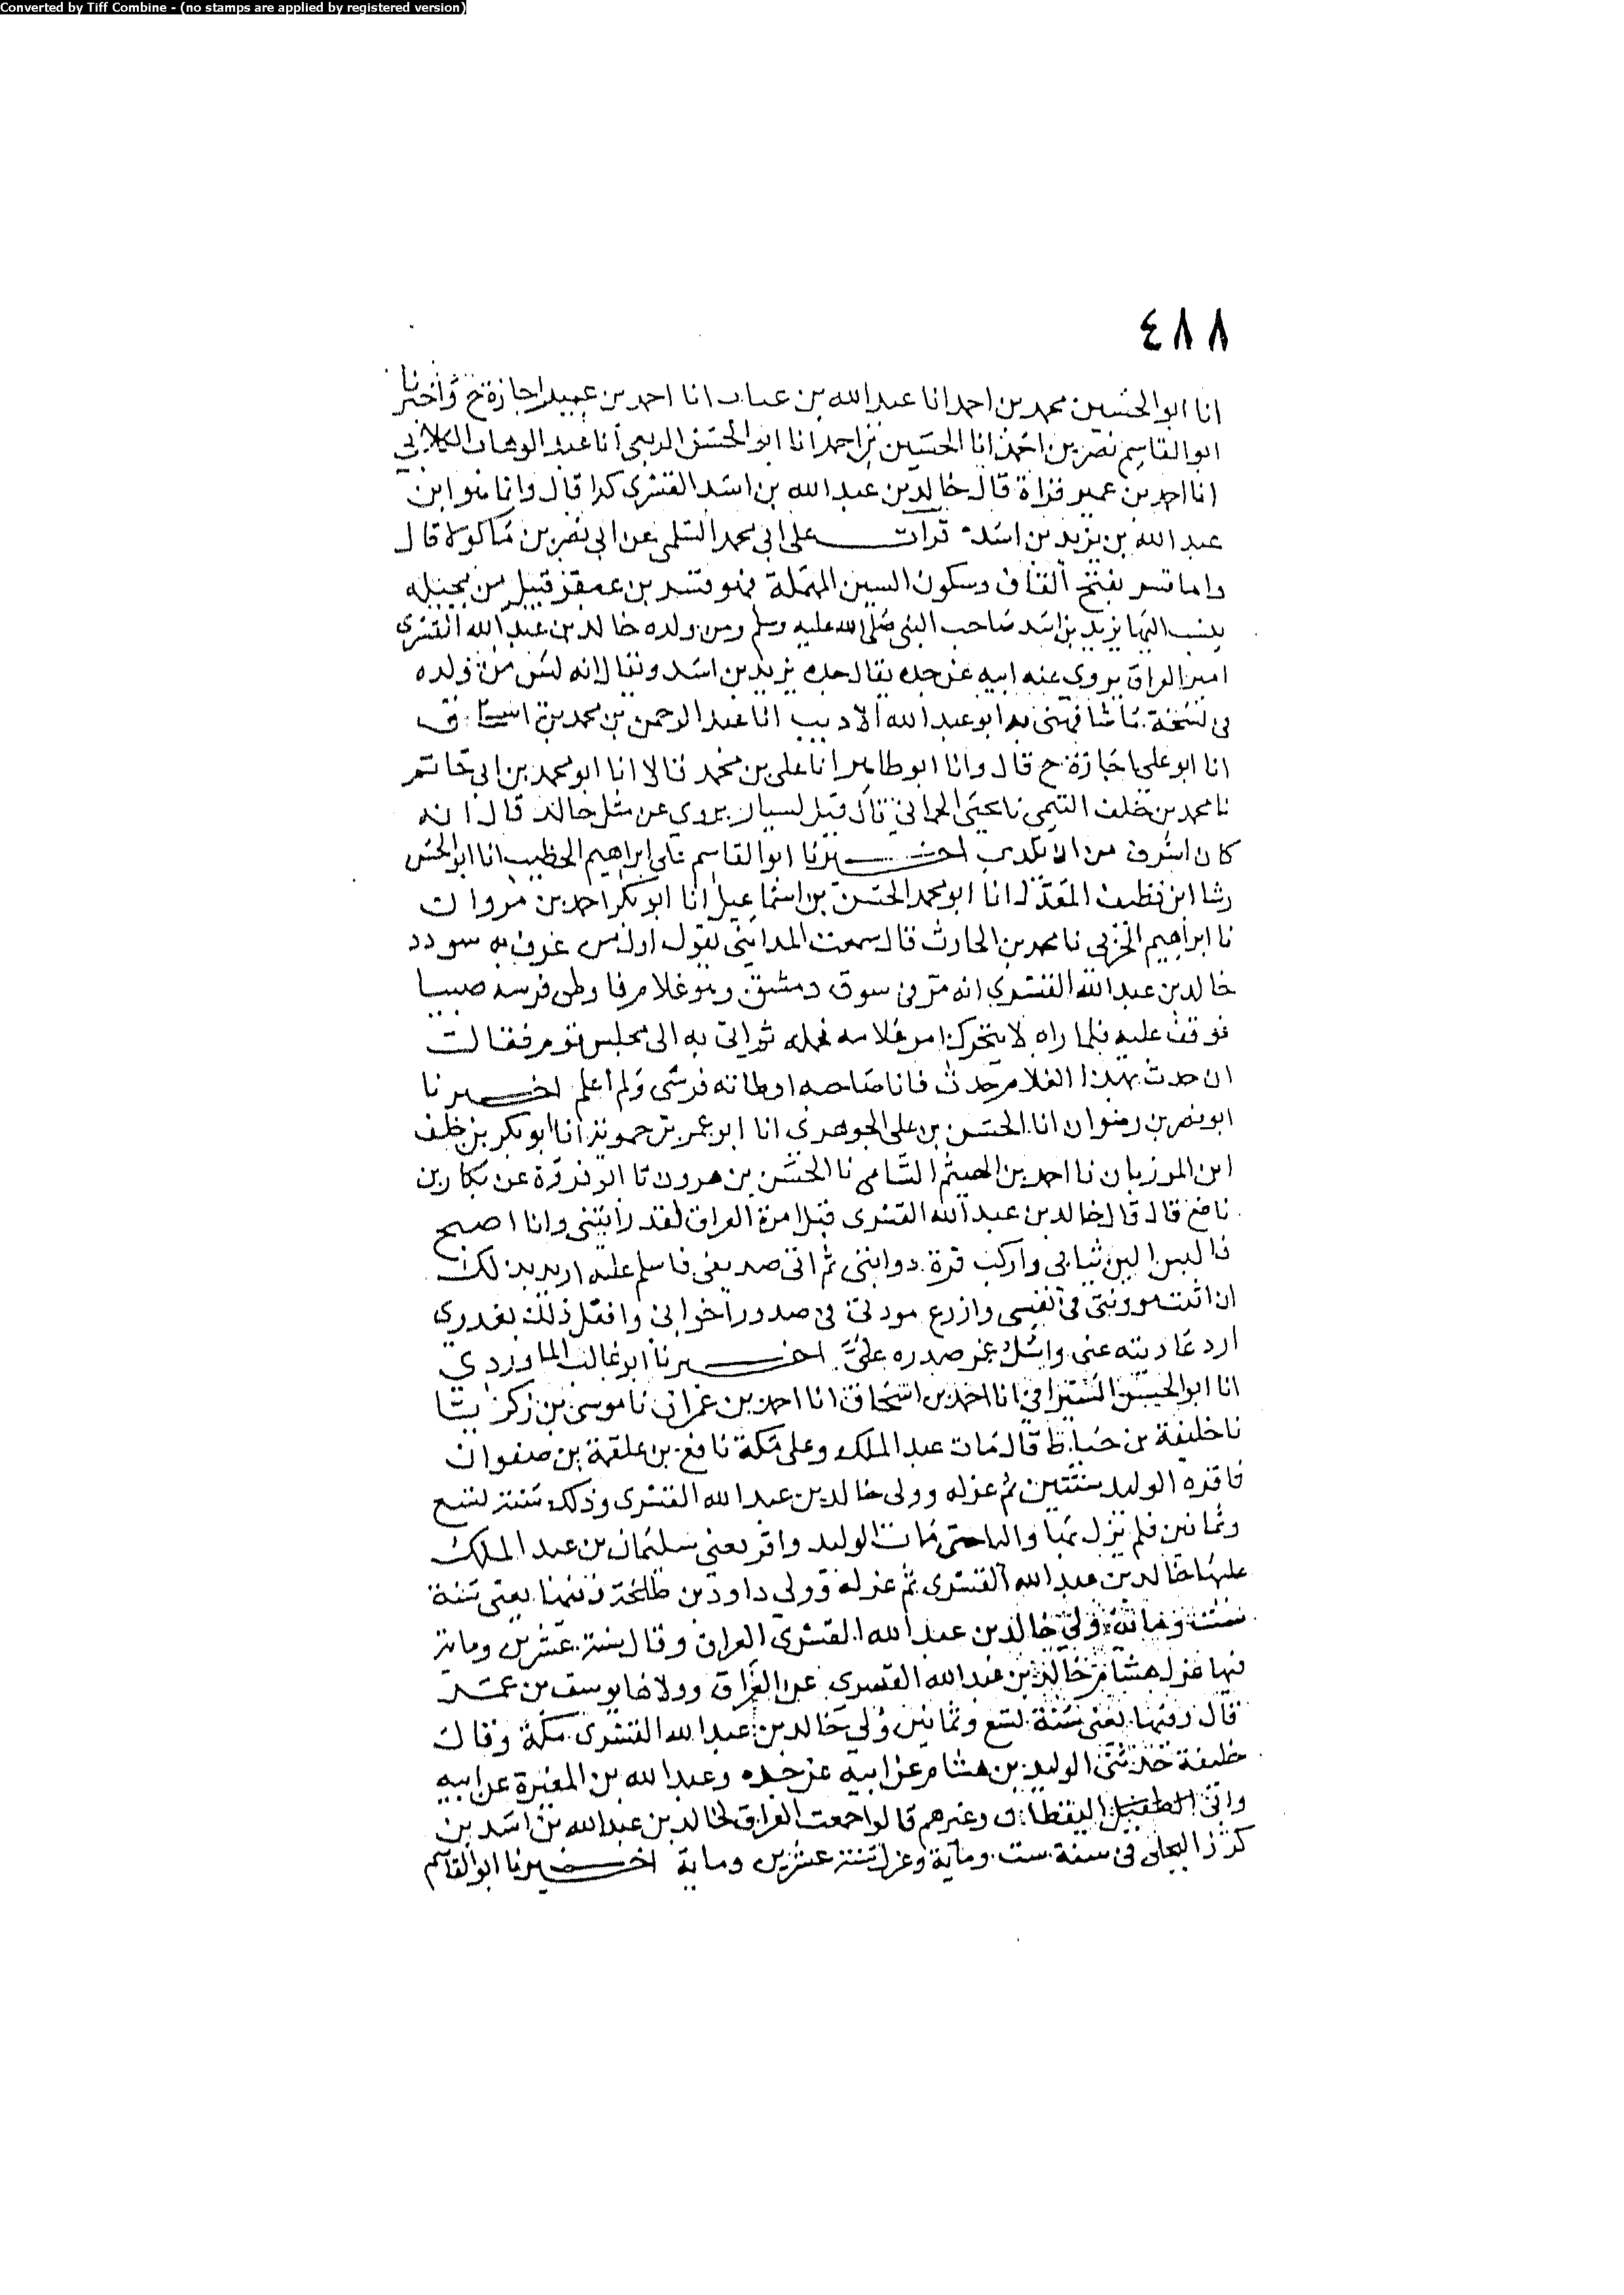 Converted by Tiff Combine - (no stamps are applied by registered version)
٤٨٨
انا ابو الحسين محمد بن احمد انا عبد الله بن عتاب انا احمد بن عمير اجازة ح واخبرنا
ابو القاسم نصر بن احمد انا الحسين بن احمد انا ابو الحسن الربعى أنا عبد الوهاب الكلابي
انا احمد بن عمير قراة قال خالد بن عبد الله بن اسد القسرى كذا قال وانما هو ابن
عبد الله بن يزيد بن اسد قرات على ابي محمد السلمى عن ابي نصر بن ماكولا قال
واما قسر بفتح القاف وسكون السين المهملة فهو قسر بن عبقر قبيل من بجيله
ينسب اليها يزيد بن اسد صاحب النبى صلى الله عليه وسلم ومن ولده خالد بن عبد الله القسرى
امير العراق يروى عنه ابيه عن جده يقال جده يزيد بن اسد ويقال انه ليس من ولده
فى نسخة ما شافهنى به ابو عبد الله الاديب انا عبد الرحمن بن محمد بن اسحاق
انا ابو على اجازة ح قال وانا ابو طاهر انا على بن محمد قالا انا ابو محمد بن ابى حاتم
نا محمد بن خلف التيمى نا يحيى الحماني قال قيل لسيار يروى عن مثل خالد قال انه
كان اشرف من ان يكذب اخبرنا ابو القاسم على بن ابراهيم الخطيب انا ابو الحسن
رشا ابن نظيف المعدل انا ابو محمد الحسن بن اسماعيل انا ابو بكر احمد بن مروان
نا ابراهيم الحربي نا محمد بن الحارث قال سمعت المدايني يقول اول من عرف به سودد
خالد بن عبد الله القسرى انه مر فى سوق دمشق وهو غلام فاوطى فرسه صبيا
فوقف عليه فلما راه لا يتحرك امر غلامه فحمله ثم اتى به الى مجلس قوم فقالت
ان حدث بهذا الغلام حدث فانا صاحبه اوطاته فرسى ولم اعلم اخبرنا
ابو نصر بن رضوان انا الحسن بن على الجوهرى انا ابو عمر بن حيويه انا ابو بكر بن خلف
ابن المرزبان نا احمد بن الهيثم السامى نا الحسن بن هرون نا ابو فروة عن بكار بن
نافع قال قال خالد بن عبد الله القسرى قبل امرة العراق لقد رايتنى وانا اصبح
فالبس الين ثيابى واركب فرة دوابى ثم اتى صديقى فاسلم عليه اريد بذلك
ان اثبت مروءتى فى نفسى وازرع مودتى فى صدور اخوانى وافعل ذلك بعدوى
ارد عاديته عنى واسل غمر صدره علىّ اخبرنا ابو غالب الماوردي
انا ابو الحسن السيرافى انا احمد بن اسحاق انا احمد بن عمران نا موسى بن زكريا
نا خليفة بن خياط قال مات عبد الملك وعلى مكة نافع بن علقمة بن صفوان
فاقره الوليد سنتين ثم عزله وولى خالد بن عبد الله القسرى وذلك سنة تسع
وثمانين فلم يزل بها واليا حتى مات الوليد واقر يعنى سليمان بن عبد الملك
عليها خالد بن عبد الله القسرى ثم عزله وولى داود بن طلحة وفيها يعنى سنة
ست ومائة ولى خالد بن عبد الله القسرى العراق وقال سنة عشرين وماية
فيها عزل هشام خالد بن عبد الله القسرى عن العراق وولاها يوسف بن عمر
قال وفيها يعنى سنة تسع وثمانين ولى خالد بن عبد الله القسرى مكة وقال
خليفة حدثنى الوليد بن هشام عن ابيه عن جده وعبد الله بن المغيرة عن ابيه
وابى اليقظان وغيرهم قالوا جمعت العراق لخالد بن عبد الله بن اسد بن
كرز البجلى فى سنة ست وماية وعزل سنة عشرين وماية اخبرنا ابو القاسم